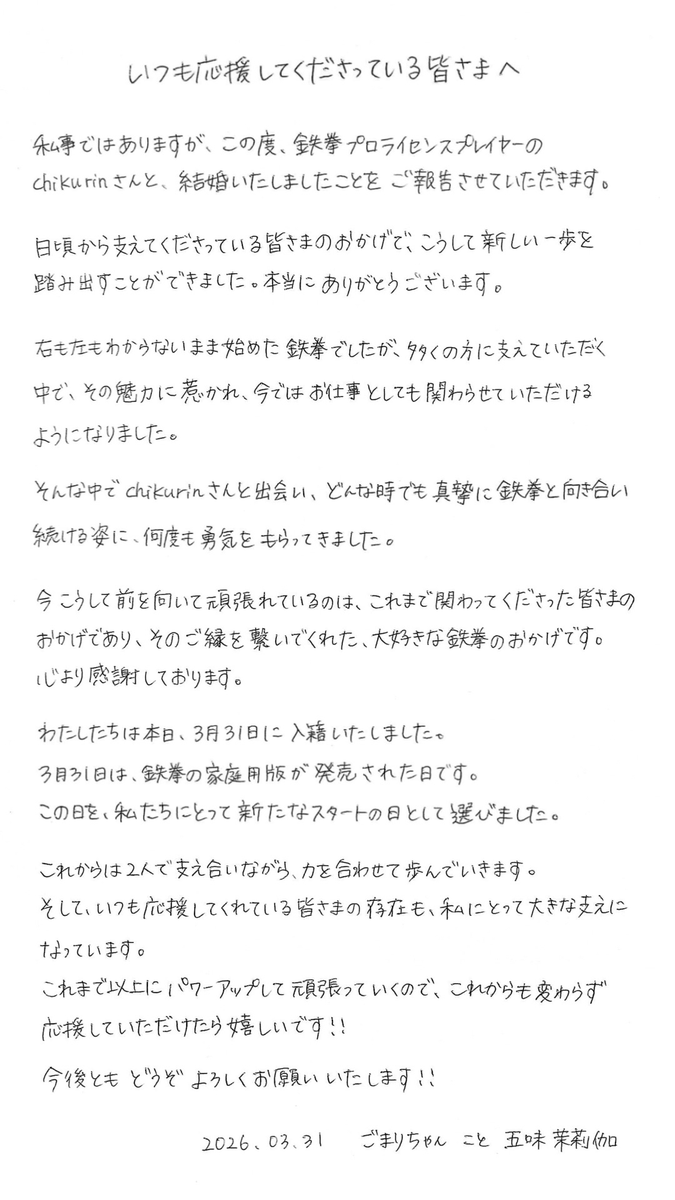 いつも応援してくださっている皆さまへ
私事ではありますが、この度、鉄拳プロライセンスプレイヤーの
chikurinさんと、結婚いたしましたことをご報告させていただきます。
日頃から支えてくださっている皆さまのおかげで、こうして新しい一歩を
踏み出すことができました。本当にありがとうございます。
右も左もわからないまま始めた鉄拳でしたが、多くの方に支えていただく
中で、その魅力に惹かれ、今ではお仕事としても関わらせていただける
ようになりました。
そんな中でchikurinさんと出会い、どんな時でも真摯に鉄拳と向き合い
続ける姿に、何度も勇気をもらってきました。
今こうして前を向いて頑張れているのは、これまで関わってくださった皆さまの
おかげであり、そのご縁を繋いでくれた、大好きな鉄拳のおかげです。
心より感謝しております。
わたしたちは本日、3月31日に入籍いたしました。
3月31日は、鉄拳の家庭用版が発売された日です。
この日を、私たちにとって新たなスタートの日として選びました。
これからは2人で支え合いながら、力を合わせて歩んでいきます。
そして、いつも応援してくれている皆さまの存在も、私にとって大きな支えに
なっています。
これまで以上にパワーアップして頑張っていくので、これからも変わらず
応援していただけたら嬉しいです!!
今後ともどうぞよろしくお願いいたします!!
2026.03.31 ごまりちゃん こと 五味 茉莉伽